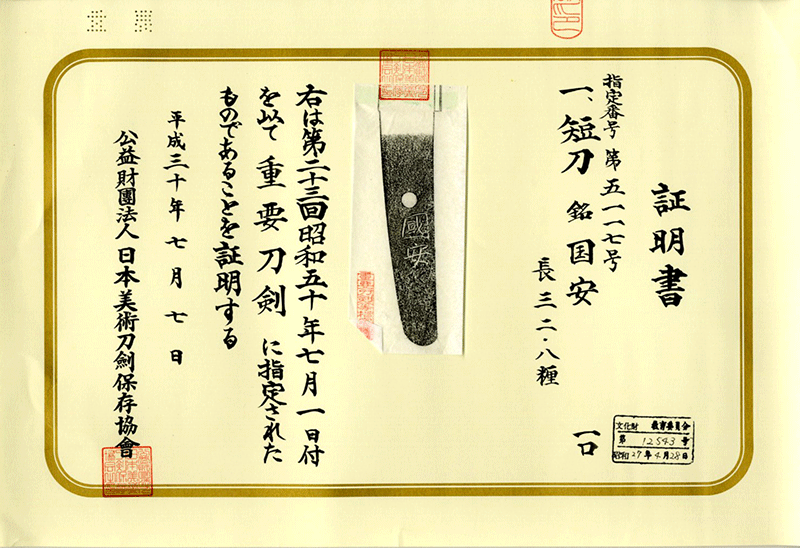 証明書
指定番号 第五一一七号
一、短刀 銘 国安 一口
長 三二・八糎
國安
右は第二十三回昭和五十年七月一日付
を以て重要刀剣に指定された
ものであることを証明する
平成三十年七月七日
公益財團法人 日本美術刀劍保存協會
文化財 教育委員会
第 12543 号
昭和27年4月28日